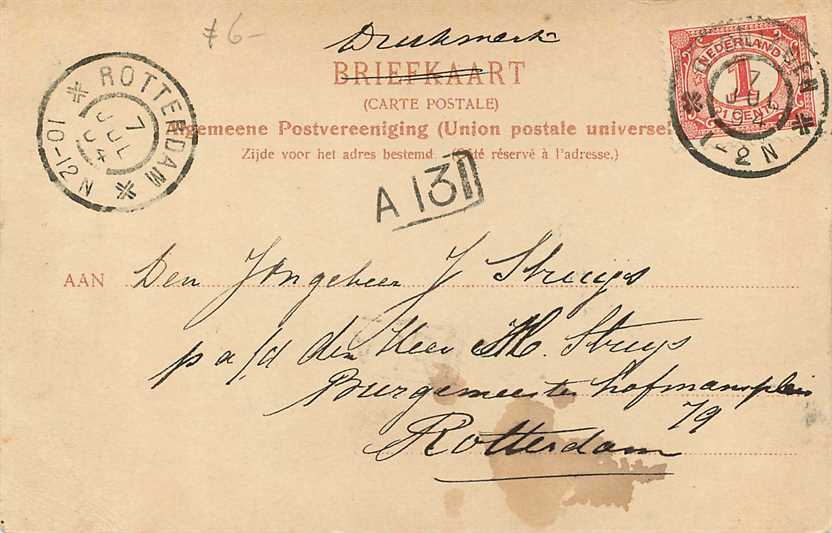 ƒ 6-
Drukwerk
BRIEFKAART
(CARTE POSTALE)
Algemeene Postvereeniging (Union postale universel
Zijde voor het adres bestemd. (Côté réservé à l'adresse.)
NEDERLAND
1
1 CENT
ROTTERDAM
7
JUL
04
10-12N
DEN
7
JUL
1-2N
A 131
AAN Den Jongeheer J Struijs
p a/d den Heer H. Struys
Burgemeester hofmansplein
79
Rotterdam